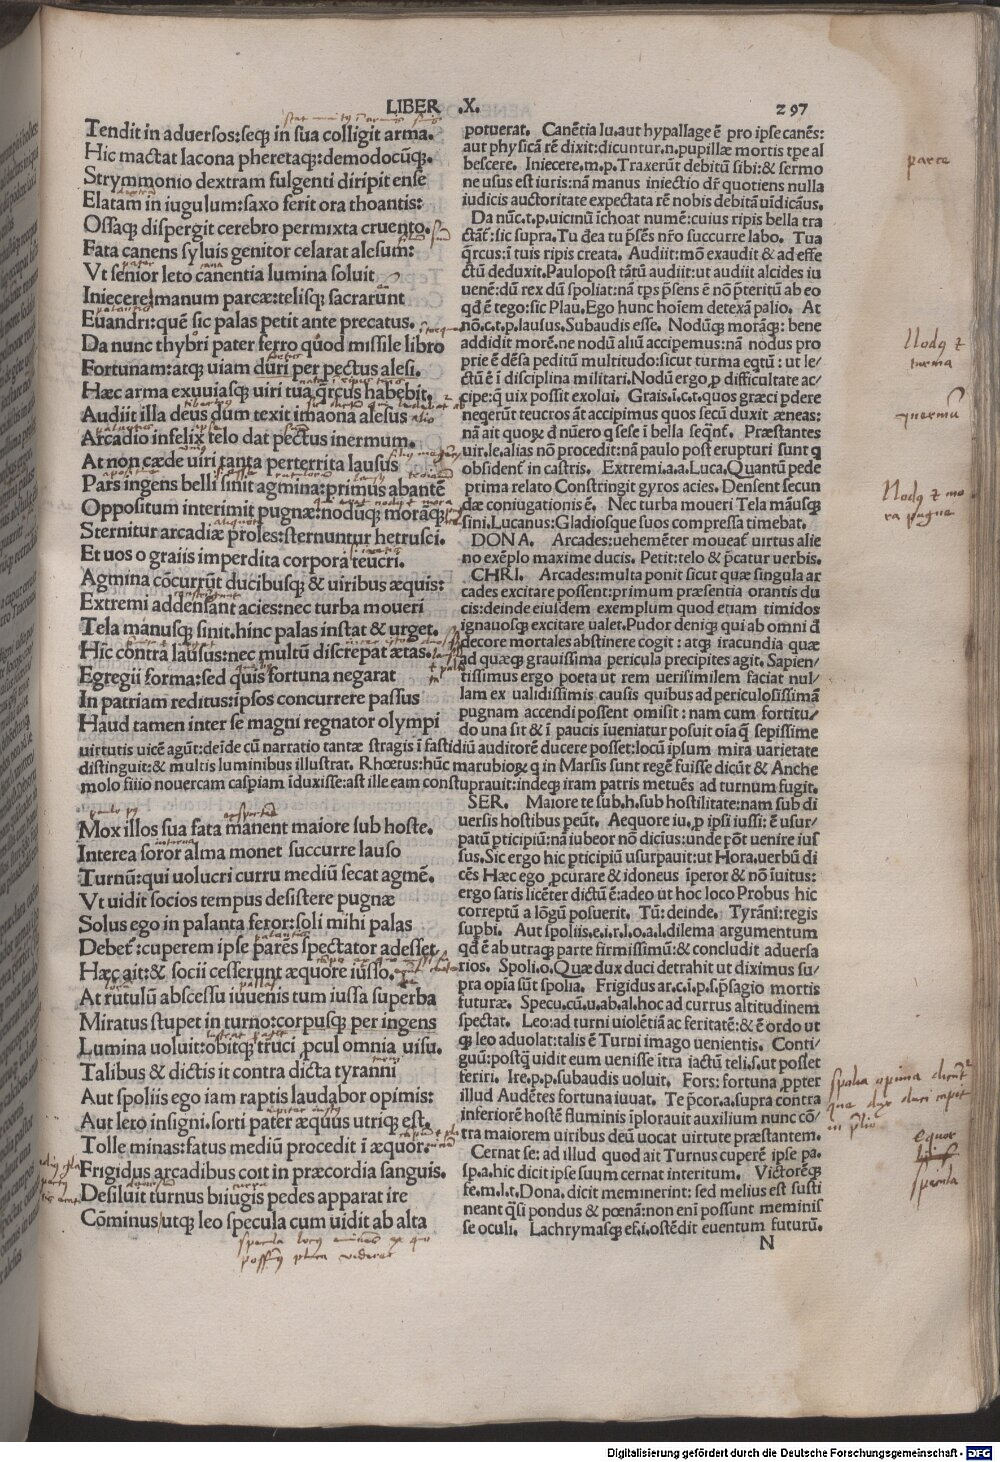 LIBER .X. 297
Tendit in aduersos:seq; in sua colligit arma.
Hic mactat lacona pheretaq;:demodocũq;.
Strymmonio dextram fulgenti diripit ense
Elatam in iugulum:saxo ferit ora thoantis:
Ossaq; dispergit cerebro permixta cruento.
Fata canens syluis genitor celarat alesum:
Vt senior leto canentia lumina soluit
Iniecere manum parcæ:telisq; sacrarunt
Euandri:quẽ sic palas petit ante precatus.
Da nunc thybri pater ferro quod missile libro
Fortunam:atq; uiam duri per pectus alesi.
Hæc arma exuuiasq; uiri tua q̃rcus habebit.
Audiit illa deus dum texit imaona alesus
Arcadio infelix telo dat pectus inermum.
At non cæde uiri tanta perterrita lausus
Pars ingens belli sinit agmina:primus abantẽ
Oppositum interimit pugnæ:nodũq; moraq;
Sternitur arcadiæ proles:sternuntur hetrusci.
Et uos o graiis imperdita corpora teucri.
Agmina cõcurrũt ducibusq; & uiribus æquis:
Extremi addensant acies:nec turba moueri
Tela manusq; sinit.hinc palas instat & urget.
Hic contra lausus:nec multũ discrepat ætas.
Egregii forma:sed quis fortuna negarat
In patriam reditus:ipsos concurrere passus
Haud tamen inter se magni regnator olympi
potuerat. Canẽtia lu.aut hypallage ẽ pro ipse canẽs:
aut physicã rẽ dixit:dicuntur.n.pupillæ mortis tpe al
bescere. Iniecere.m.p.Traxerũt debitũ sibi:& sermo
ne usus est iuris:nã manus iniectio dr̃ quotiens nulla
iudicis auctoritate expectata rẽ nobis debitã uĩdicãus.
Da nũc.t.p.uicinũ ĩchoat numẽ:cuius ripis bella tra
ctãt:sic supra.Tu đea tu p̃sẽs nr̃o succurre labo. Tua
q̃rcus:ĩ tuis ripis creata. Audiit:mõ exaudit & ad effe
ctũ deduxit.Paulopost tãtũ audiit:ut audiit alcides iu
uenẽ:dũ rex dũ spoliat:nã tps p̃sens ẽ nõ p̃teritũ ab eo
qđ ẽ tego:sic Plau.Ego hunc hoĩem detexã palio. At
nõ.c.t.p.lausus.Subaudis esse. Nodũq; morãq;: bene
addidit morẽ.ne nodũ aliũ accipemus:nã nodus pro
prie ẽ đẽsa peditũ multitudo:sicut turma eqtũ : ut le/
ctũ ẽ ĩ disciplina militari.Nodũ ergo,p difficultate ac/
cipe:q̃ uix possit exolui. Grais.i.c.t.quos græci pdere
neqerũt teucros ãt accipimus quos secũ duxit æneas:
nã ait quoꝝ đ nũero q sese ĩ bella seqñt. Præstantes
uir.le.alias nõ procedit:nã paulo post erupturi sunt q
obsident ĩ castris. Extremi.a.a.Luca.Quantũ pede
prima relato Constringit gyros acies. Densent secun
dæ coniugationis ẽ. Nec turba moueri Tela mãusq;
sini.Lucanus:Gladiosque suos compressa timebat.
DONA. Arcades:uehemẽter moueat uirtus alie
no exẽplo maxime ducis. Petit:telo & p̃catur uerbis.
CHRI. Arcades:multa ponit sicut quæ singula ar
cades excitare possent:primum præsentia orantis du
cis:deinde eiusdem exemplum quod etiam timidos
ignauosq; excitare ualet.Pudor deniq; qui ab omni đ
decore mortales abstinere cogit : atq; iracundia quæ
ad quæq; grauissima pericula precipites agit. Sapien/
tissimus ergo poeta ut rem uerisimilem faciat nul/
lam ex ualidissimis causis quibus ad periculosissimã
pugnam accendi possent omisit : nam cum fortitu/
do una sit & ĩ paucis iueniatur posuit oia q̃ sepissime
uirtutis uicẽ agũt:deĩde cũ narratio tantæ stragis ĩ fastidiũ auditorẽ ducere posset:locũ ipsum mira uarietate
distinguit:& multis luminibus illustrat. Rhœtus:hũc marubioꝝ q in Marsis sunt regẽ fuisse dicũt & Anche
molo filio nouercam caspiam ĩduxisse:ast ille eam constuprauit:indeq; iram patris metuẽs ad turnum fugit.
Mox illos sua fata manent maiore sub hoste.
Interea soror alma monet succurre lauso
Turnũ:qui uolucri curru mediũ secat agmẽ.
Vt uidit socios tempus desistere pugnæ
Solus ego in palanta feror:soli mihi palas
Debet:cuperem ipse parẽs spectator adesset.
Hæc ait:& socii cesserunt æquore iusso.
At rutulũ abscessu iuuenis tum iussa superba
Miratus stupet in turno:corpusq; per ingens
Lumina uoluit:obitq; truci ,pcul omnia uisu.
Talibus & dictis it contra dicta tyranni
Aut spoliis ego iam raptis laudabor opimis:
Aut leto insigni.sorti pater æquus utriq; est.
Tolle minas:fatus mediũ procedit ĩ æquor.
Frigidus arcadibus coit in præcordia sanguis.
Desiluit turnus biiugis pedes apparat ire
Cõminus utq; leo specula cum uidit ab alta
SER. Maiore te sub.h.sub hostilitate:nam sub di
uersis hostibus peũt. Aequore iu.,p ipsi iussi: ẽ usur/
patũ pticipiũ:nã iubeor nõ dicĩus:unde põt uenire ius
sus.Sic ergo hic pticipiũ usurpauit:ut Hora.uerbũ di
cẽs Hæc ego ,pcurare & idoneus ĩperor & nõ ĩuitus:
ergo satis licẽter dictũ ẽ:adeo ut hoc loco Probus hic
correptũ a lõgũ posuerit. Tũ:deinde. Tyrãni:regis
supbi. Aut spoliis.e.i.r.l.o.a.l.dilema argumentum
qđ ẽ ab utraq; parte firmissimũ:& concludit aduersa
rios. Spoli.o.Quæ dux duci detrahit ut diximus su/
pra opia sũt spolia. Frigidus ar.c.i.p.s.p̃sagio mortis
futuræ. Specu.cũ.u.ab.al.hoc ad currus altitudinem
spectat. Leo:ad turni uiolẽtiã ac feritatẽ:& ẽ ordo ut
q; leo aduolat:talis ẽ Turni imago uenientis. Conti/
guũ:postq̃ uidit eum uenisse ĩtra iactũ teli.s.ut posset
feriri. Ire.p.p.subaudis uoluit. Fors: fortuna ,ppter
illud Audẽtes fortuna iuuat. Te p̃cor.a.supra contra
inferiorẽ hostẽ fluminis ĩplorauit auxilium nunc cõ/
tra maiorem uiribus deũ uocat uirtute præstantem.
Cernat se: ad illud quod ait Turnus cuperẽ ipse pa.
sp.a.hic dicit ipse suum cernat interitum. Victorẽq;
fe.m.l.t.Dona.dicit meminerint: sed melius est susti
neant q̃si pondus & pœnã:non eni possunt meminis
se oculi. Lachrymasq; ef.i.ostẽdit euentum futurũ.
N
parce
Nodq; &
turma
Nodq; & mo
ra pugne
spolia opima dicunt
que dux duci capit
equor
specula
Digitalisierung gefördert durch die Deutsche Forschungsgemeinschaft - DFG